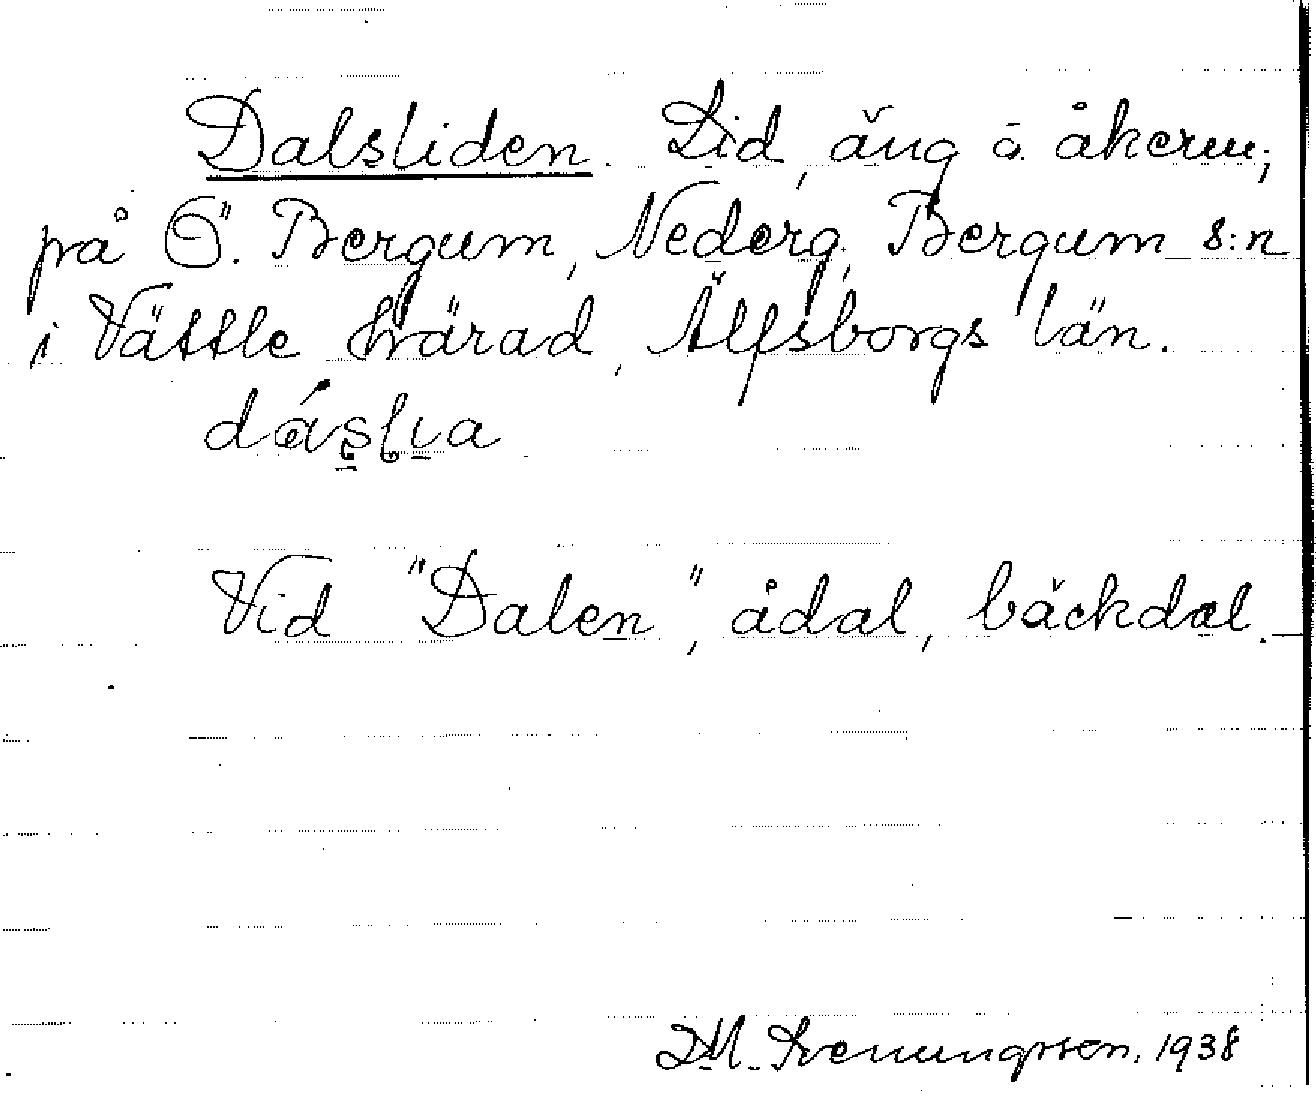 Dalsliden. Lid, äng å åkerm;
på Ö. Bergum, Nederg. Bergum s:n
i Vättle härad, Älfsborgs län.
dáslıa
Vid "Dalen", ådal, bäckdal.
D.M. Svenungsson. 1938